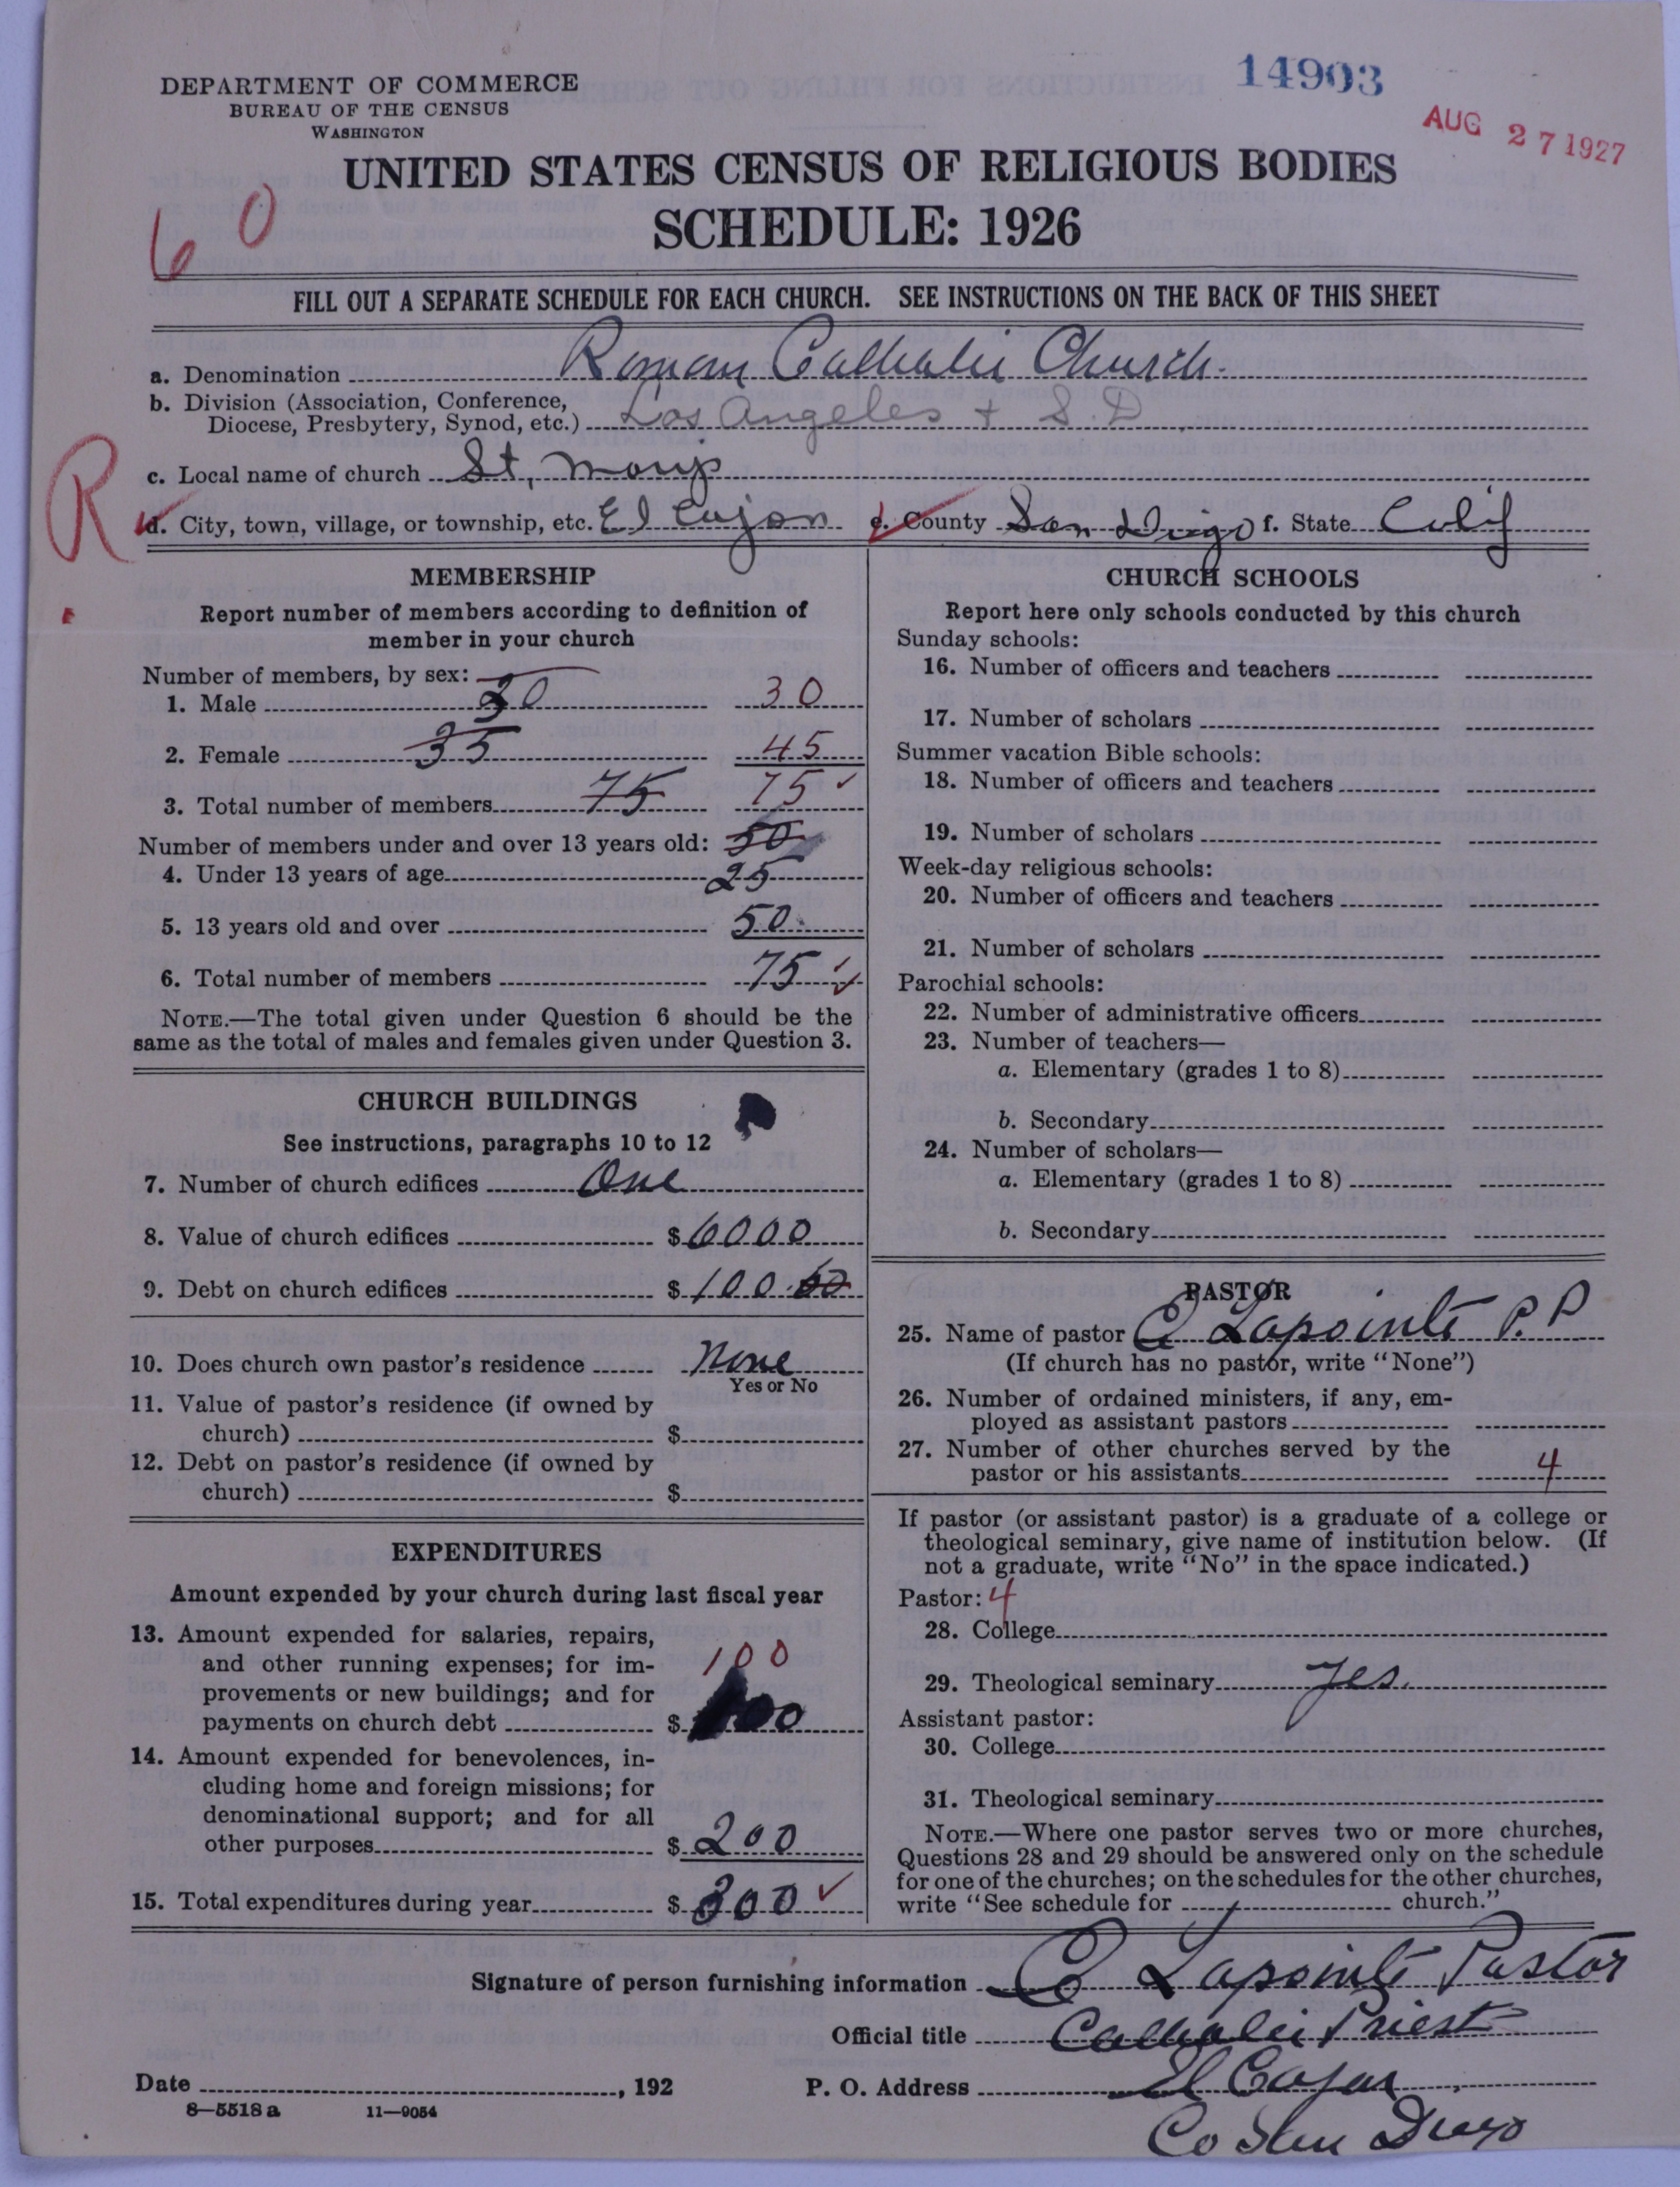 14903
AUG 27 1927
DEPARTMENT OF COMMERCE
BUREAU OF THE CENSUS
WASHINGTON
UNITED STATES CENSUS OF RELIGIOUS BODIES
SCHEDULE: 1926
60
FILL OUT A SEPARATE SCHEDULE FOR EACH CHURCH. SEE INSTRUCTIONS ON THE BACK OF THIS SHEET
a. Denomination Roman Catholic Church.
b. Division (Association, Conference,
Diocese, Presbytery, Synod, etc.) Los Angeles + S.D
c. Local name of church St, Marys
R
d. City, town, village, or township, etc. El Cajon e. County San Diego f. State Calif
MEMBERSHIP
Report number of members according to definition of
member in your church
Number of members, by sex:
1. Male 30 30
2. Female 35 45
3. Total number of members 75 75 ✓
Number of members under and over 13 years old: 50
4. Under 13 years of age 25
5. 13 years old and over 50
6. Total number of members 75 ✓
NOTE.—The total given under Question 6 should be the
same as the total of males and females given under Question 3.
CHURCH BUILDINGS
See instructions, paragraphs 10 to 12
7. Number of church edifices One
8. Value of church edifices $6000
9. Debt on church edifices $100.60
10. Does church own pastor's residence None
Yes or No
11. Value of pastor's residence (if owned by
church) $
12. Debt on pastor's residence (if owned by
church) $
EXPENDITURES
Amount expended by your church during last fiscal year
13. Amount expended for salaries, repairs,
and other running expenses; for im-
provements or new buildings; and for
payments on church debt $100
100
14. Amount expended for benevolences, in-
cluding home and foreign missions; for
denominational support; and for all
other purposes $200
15. Total expenditures during year $300 ✓
CHURCH SCHOOLS
Report here only schools conducted by this church
Sunday schools:
16. Number of officers and teachers
17. Number of scholars
Summer vacation Bible schools:
18. Number of officers and teachers
19. Number of scholars
Week-day religious schools:
20. Number of officers and teachers
21. Number of scholars
Parochial schools:
22. Number of administrative officers
23. Number of teachers—
a. Elementary (grades 1 to 8)
b. Secondary
24. Number of scholars—
a. Elementary (grades 1 to 8)
b. Secondary
PASTOR
25. Name of pastor C Lapointe P.P
(If church has no pastor, write "None")
26. Number of ordained ministers, if any, em-
ployed as assistant pastors
27. Number of other churches served by the
pastor or his assistants 4
If pastor (or assistant pastor) is a graduate of a college or
theological seminary, give name of institution below. (If
not a graduate, write "No" in the space indicated.)
Pastor: 4
28. College
29. Theological seminary Yes.
Assistant pastor:
30. College
31. Theological seminary
NOTE.—Where one pastor serves two or more churches,
Questions 28 and 29 should be answered only on the schedule
for one of the churches; on the schedules for the other churches,
write "See schedule for church."
Signature of person furnishing information C Lapointe Pastor
Official title Catholic Priest
Date , 192 P. O. Address El Cajon
8—5518 a 11—9054
Co San Diego